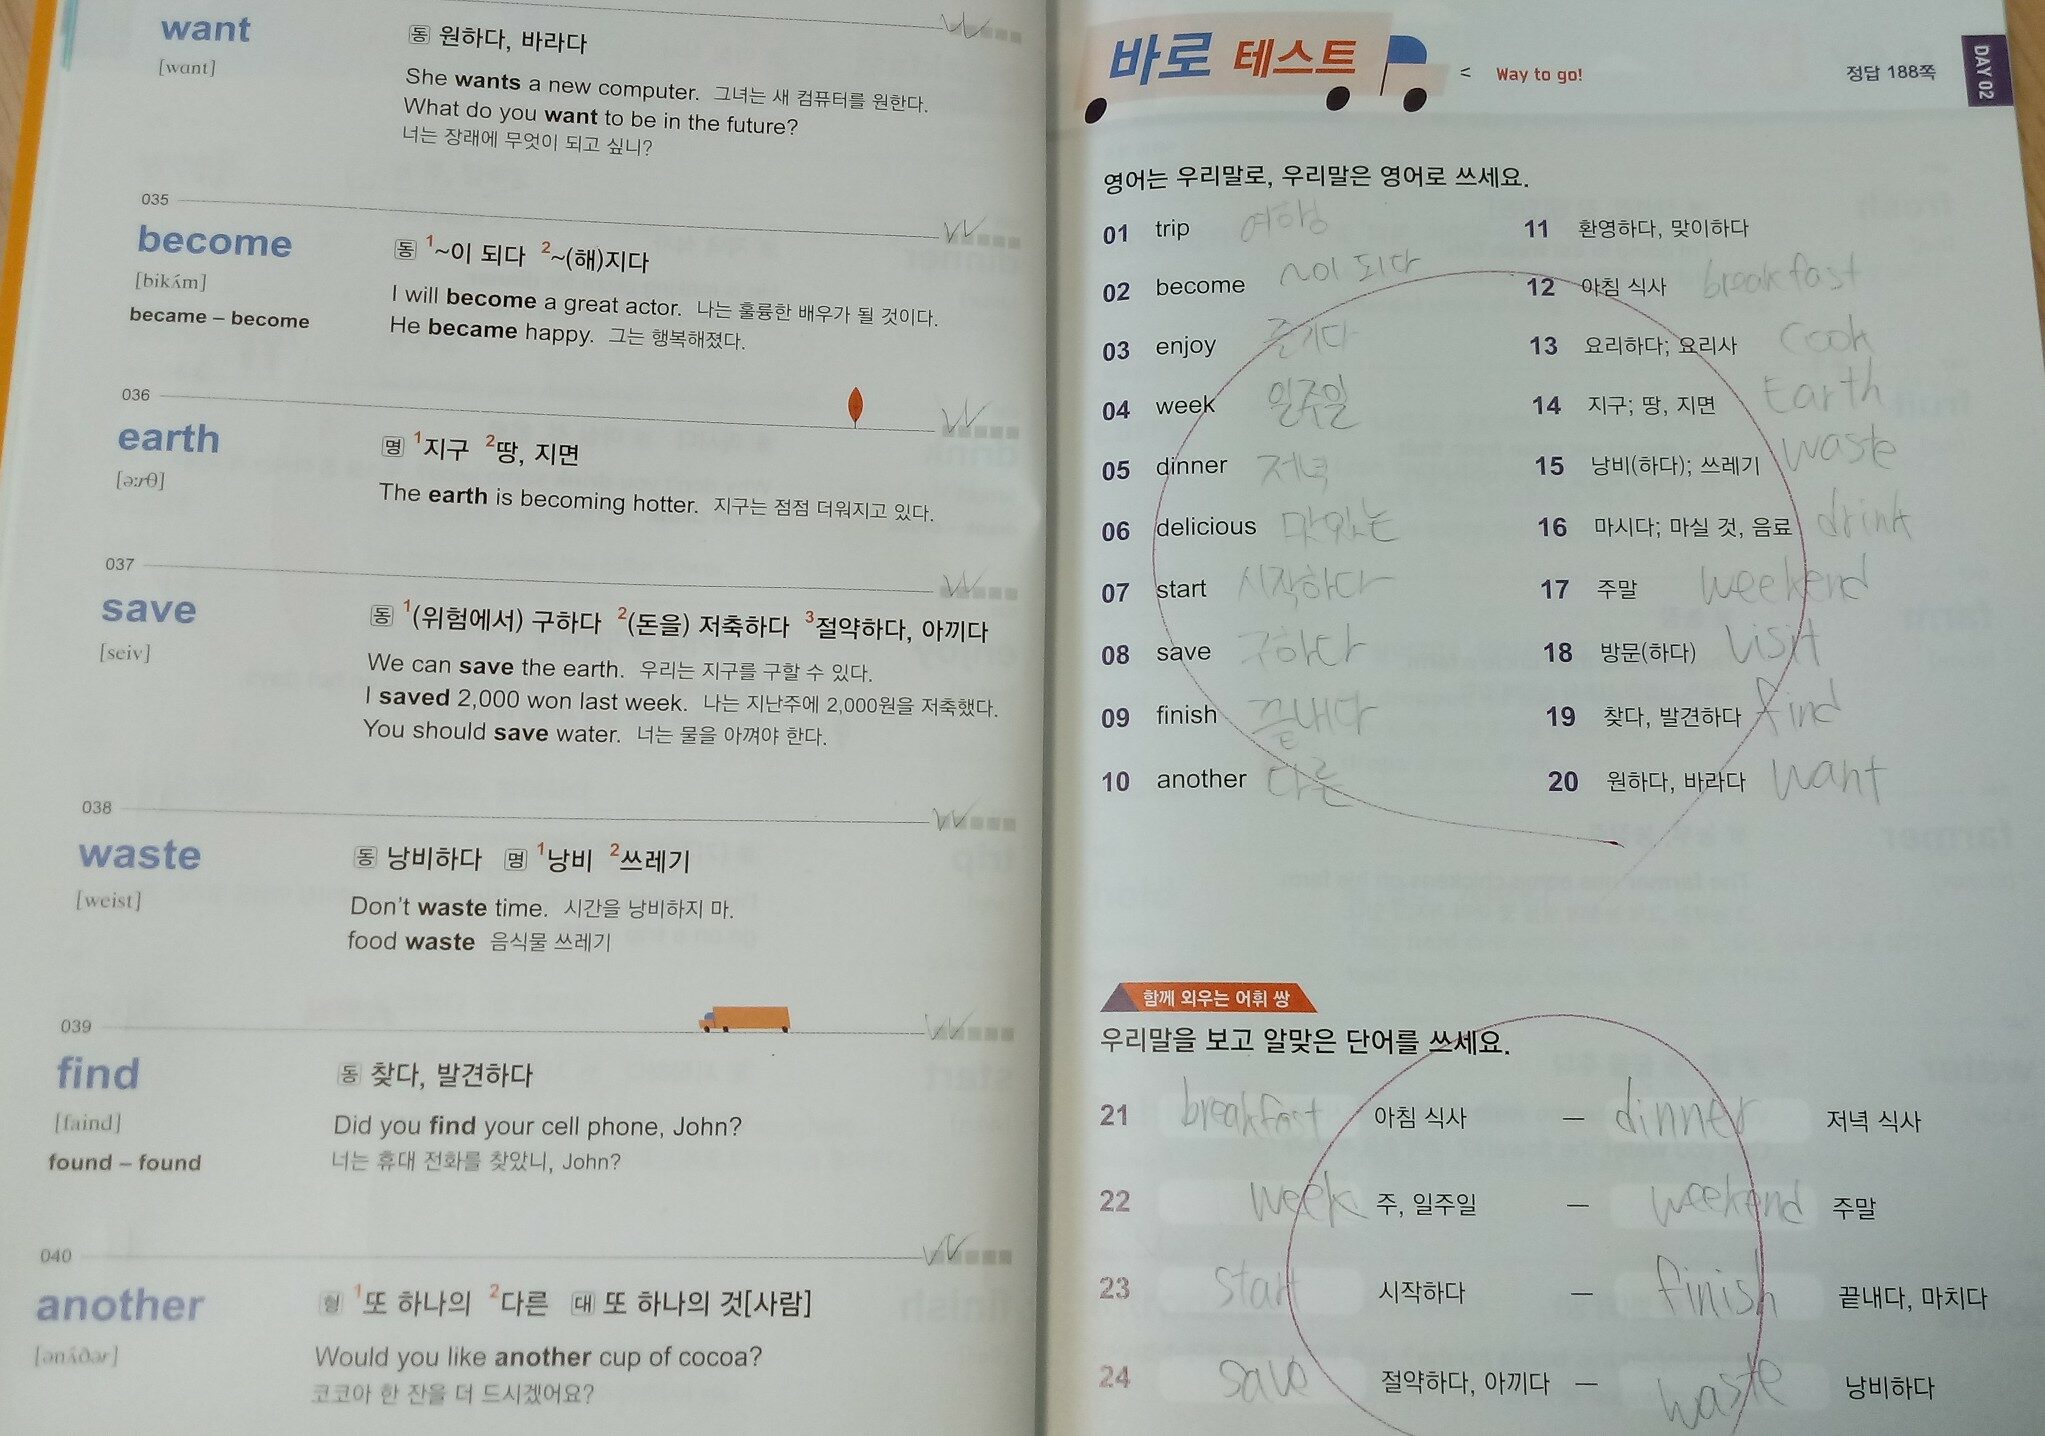 want
[want]
동 원하다, 바라다
She wants a new computer. 그녀는 새 컴퓨터를 원한다.
What do you want to be in the future?
너는 장래에 무엇이 되고 싶니?
035
become
[bikʌ́m]
became – become
동 1~이 되다 2~(해)지다
I will become a great actor. 나는 훌륭한 배우가 될 것이다.
He became happy. 그는 행복해졌다.
036
earth
[əːrθ]
명 1지구 2땅, 지면
The earth is becoming hotter. 지구는 점점 더워지고 있다.
037
save
[seiv]
동 1(위험에서) 구하다 2(돈을) 저축하다 3절약하다, 아끼다
We can save the earth. 우리는 지구를 구할 수 있다.
I saved 2,000 won last week. 나는 지난주에 2,000원을 저축했다.
You should save water. 너는 물을 아껴야 한다.
038
waste
[weist]
동 낭비하다 명 1낭비 2쓰레기
Don't waste time. 시간을 낭비하지 마.
food waste 음식물 쓰레기
039
find
[faind]
found – found
동 찾다, 발견하다
Did you find your cell phone, John?
너는 휴대 전화를 찾았니, John?
040
another
[ənʌ́ðər]
형 1또 하나의 2다른 대 또 하나의 것[사람]
Would you like another cup of cocoa?
코코아 한 잔을 더 드시겠어요?
바로 테스트
< Way to go!
정답 188쪽
DAY 02
영어는 우리말로, 우리말은 영어로 쓰세요.
01 trip 여행
02 become ~이 되다
03 enjoy 즐기다
04 week 일주일
05 dinner 저녁
06 delicious 맛있는
07 start 시작하다
08 save 구하다
09 finish 끝내다
10 another 다른
11 환영하다, 맞이하다
12 아침 식사 breakfast
13 요리하다; 요리사 cook
14 지구; 땅, 지면 Earth
15 낭비(하다); 쓰레기 waste
16 마시다; 마실 것, 음료 drink
17 주말 weekend
18 방문(하다) visit
19 찾다, 발견하다 find
20 원하다, 바라다 want
함께 외우는 어휘 쌍
우리말을 보고 알맞은 단어를 쓰세요.
21 breakfast 아침 식사 – dinner 저녁 식사
22 week 주, 일주일 – weekend 주말
23 start 시작하다 – finish 끝내다, 마치다
24 save 절약하다, 아끼다 – waste 낭비하다